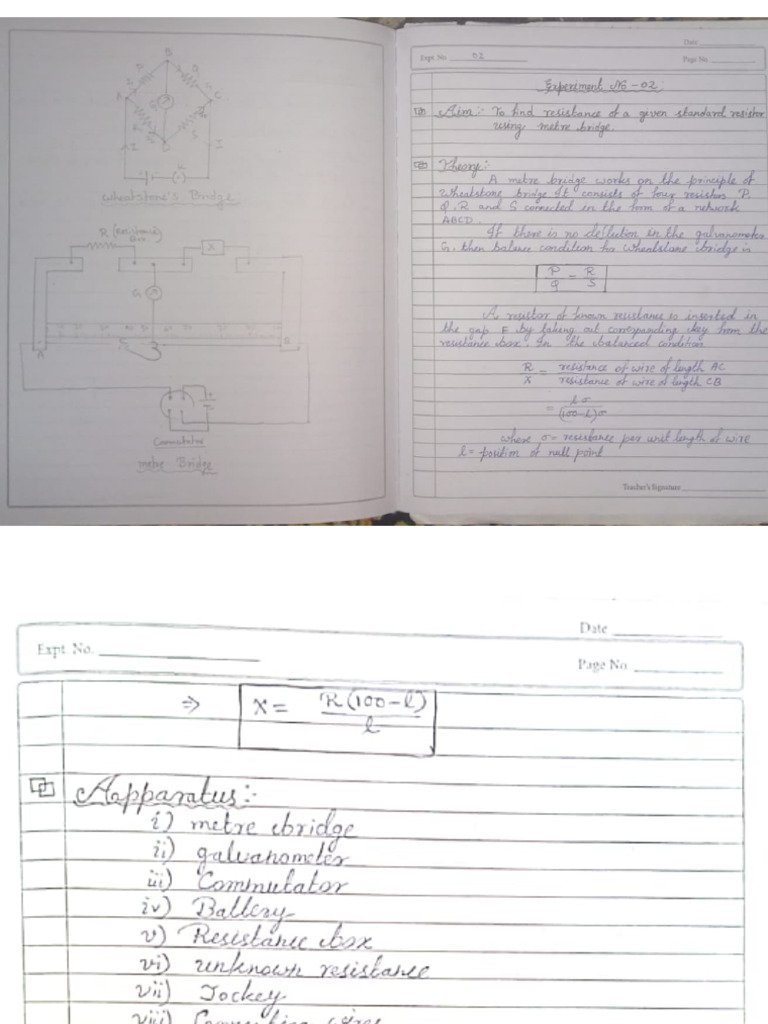 B
P
Q
I
A
C
G
R
S
I
I
K
Wheatstone's Bridge
R (Resistance
Box
X
G
A
B
Commutator
metre Bridge
Date
Expt. No. 02
Page No.
Experiment No - 02
Aim:- To find resistance of a given standard resistor
using metre bridge.
Theory:
A metre bridge works on the principle of
Wheatstone bridge It consists of four resistors P,
Q, R and S connected in the form of a network
ABCD.
If there is no deflection in the galvanometer
G, then balance condition for wheatstone bridge is
P/Q = R/S
A resistor of known resistance is inserted in
the gap E by taking out corresponding key from the
resistance box. In the balanced condition
R/X = resistance of wire of length AC
resistance of wire of length CB
= lσ/(100-l)σ
where σ = resistance per unit length of wire
l = position of null point
Teacher's Signature
Date
Expt. No.
Page No.
⇒ X = R(100-l)/l
Aapparatus:-
i) metre bridge
ii) galvanometer
iii) Commutator
iv) Battery
v) Resistance box
vi) unknown resistance
vii) Jockey
viii) Connecting wires